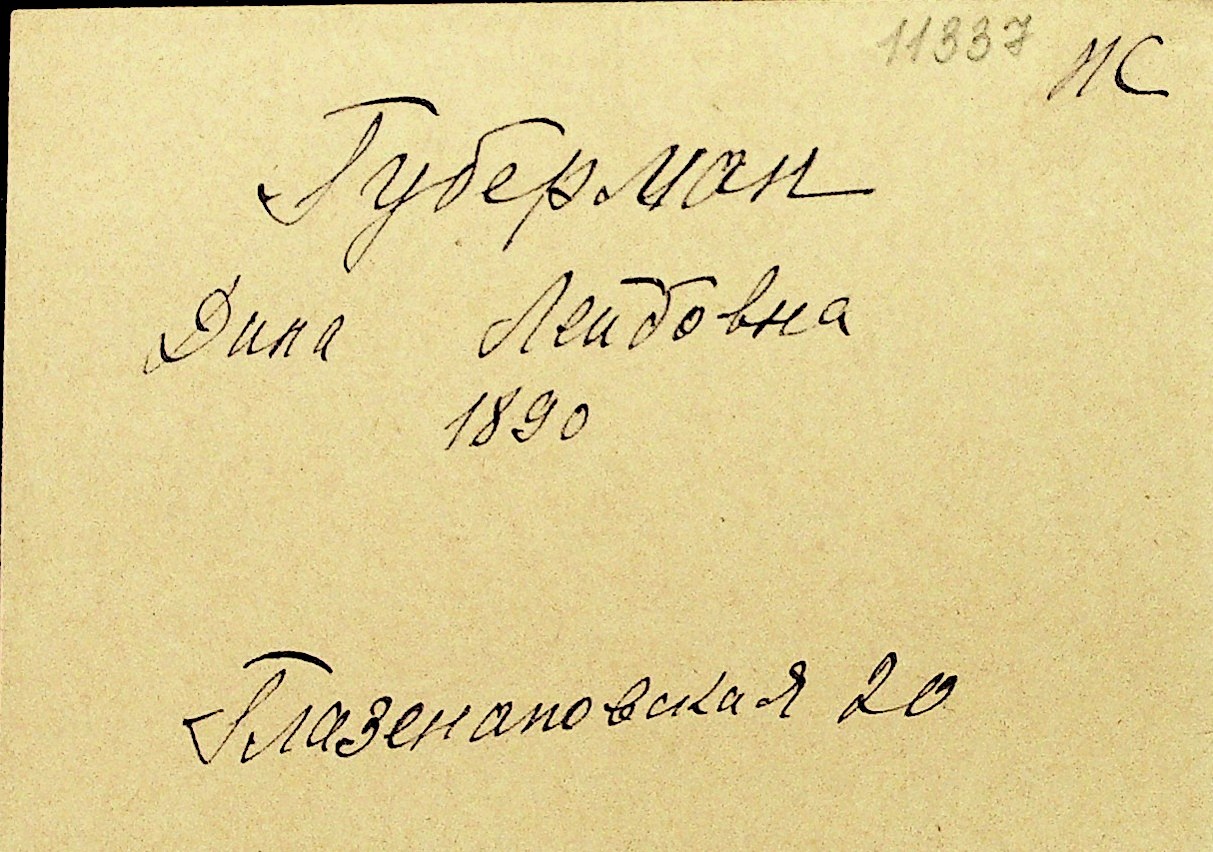 11337 ИС
Губерман
Дина Лейбовна
1890
Глазенаповская 20